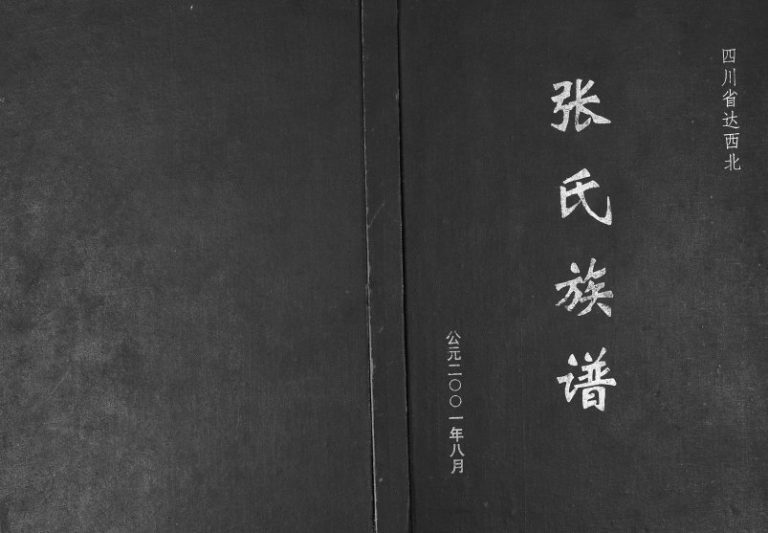 四川省达西北
张氏族谱
公元二〇〇一年八月